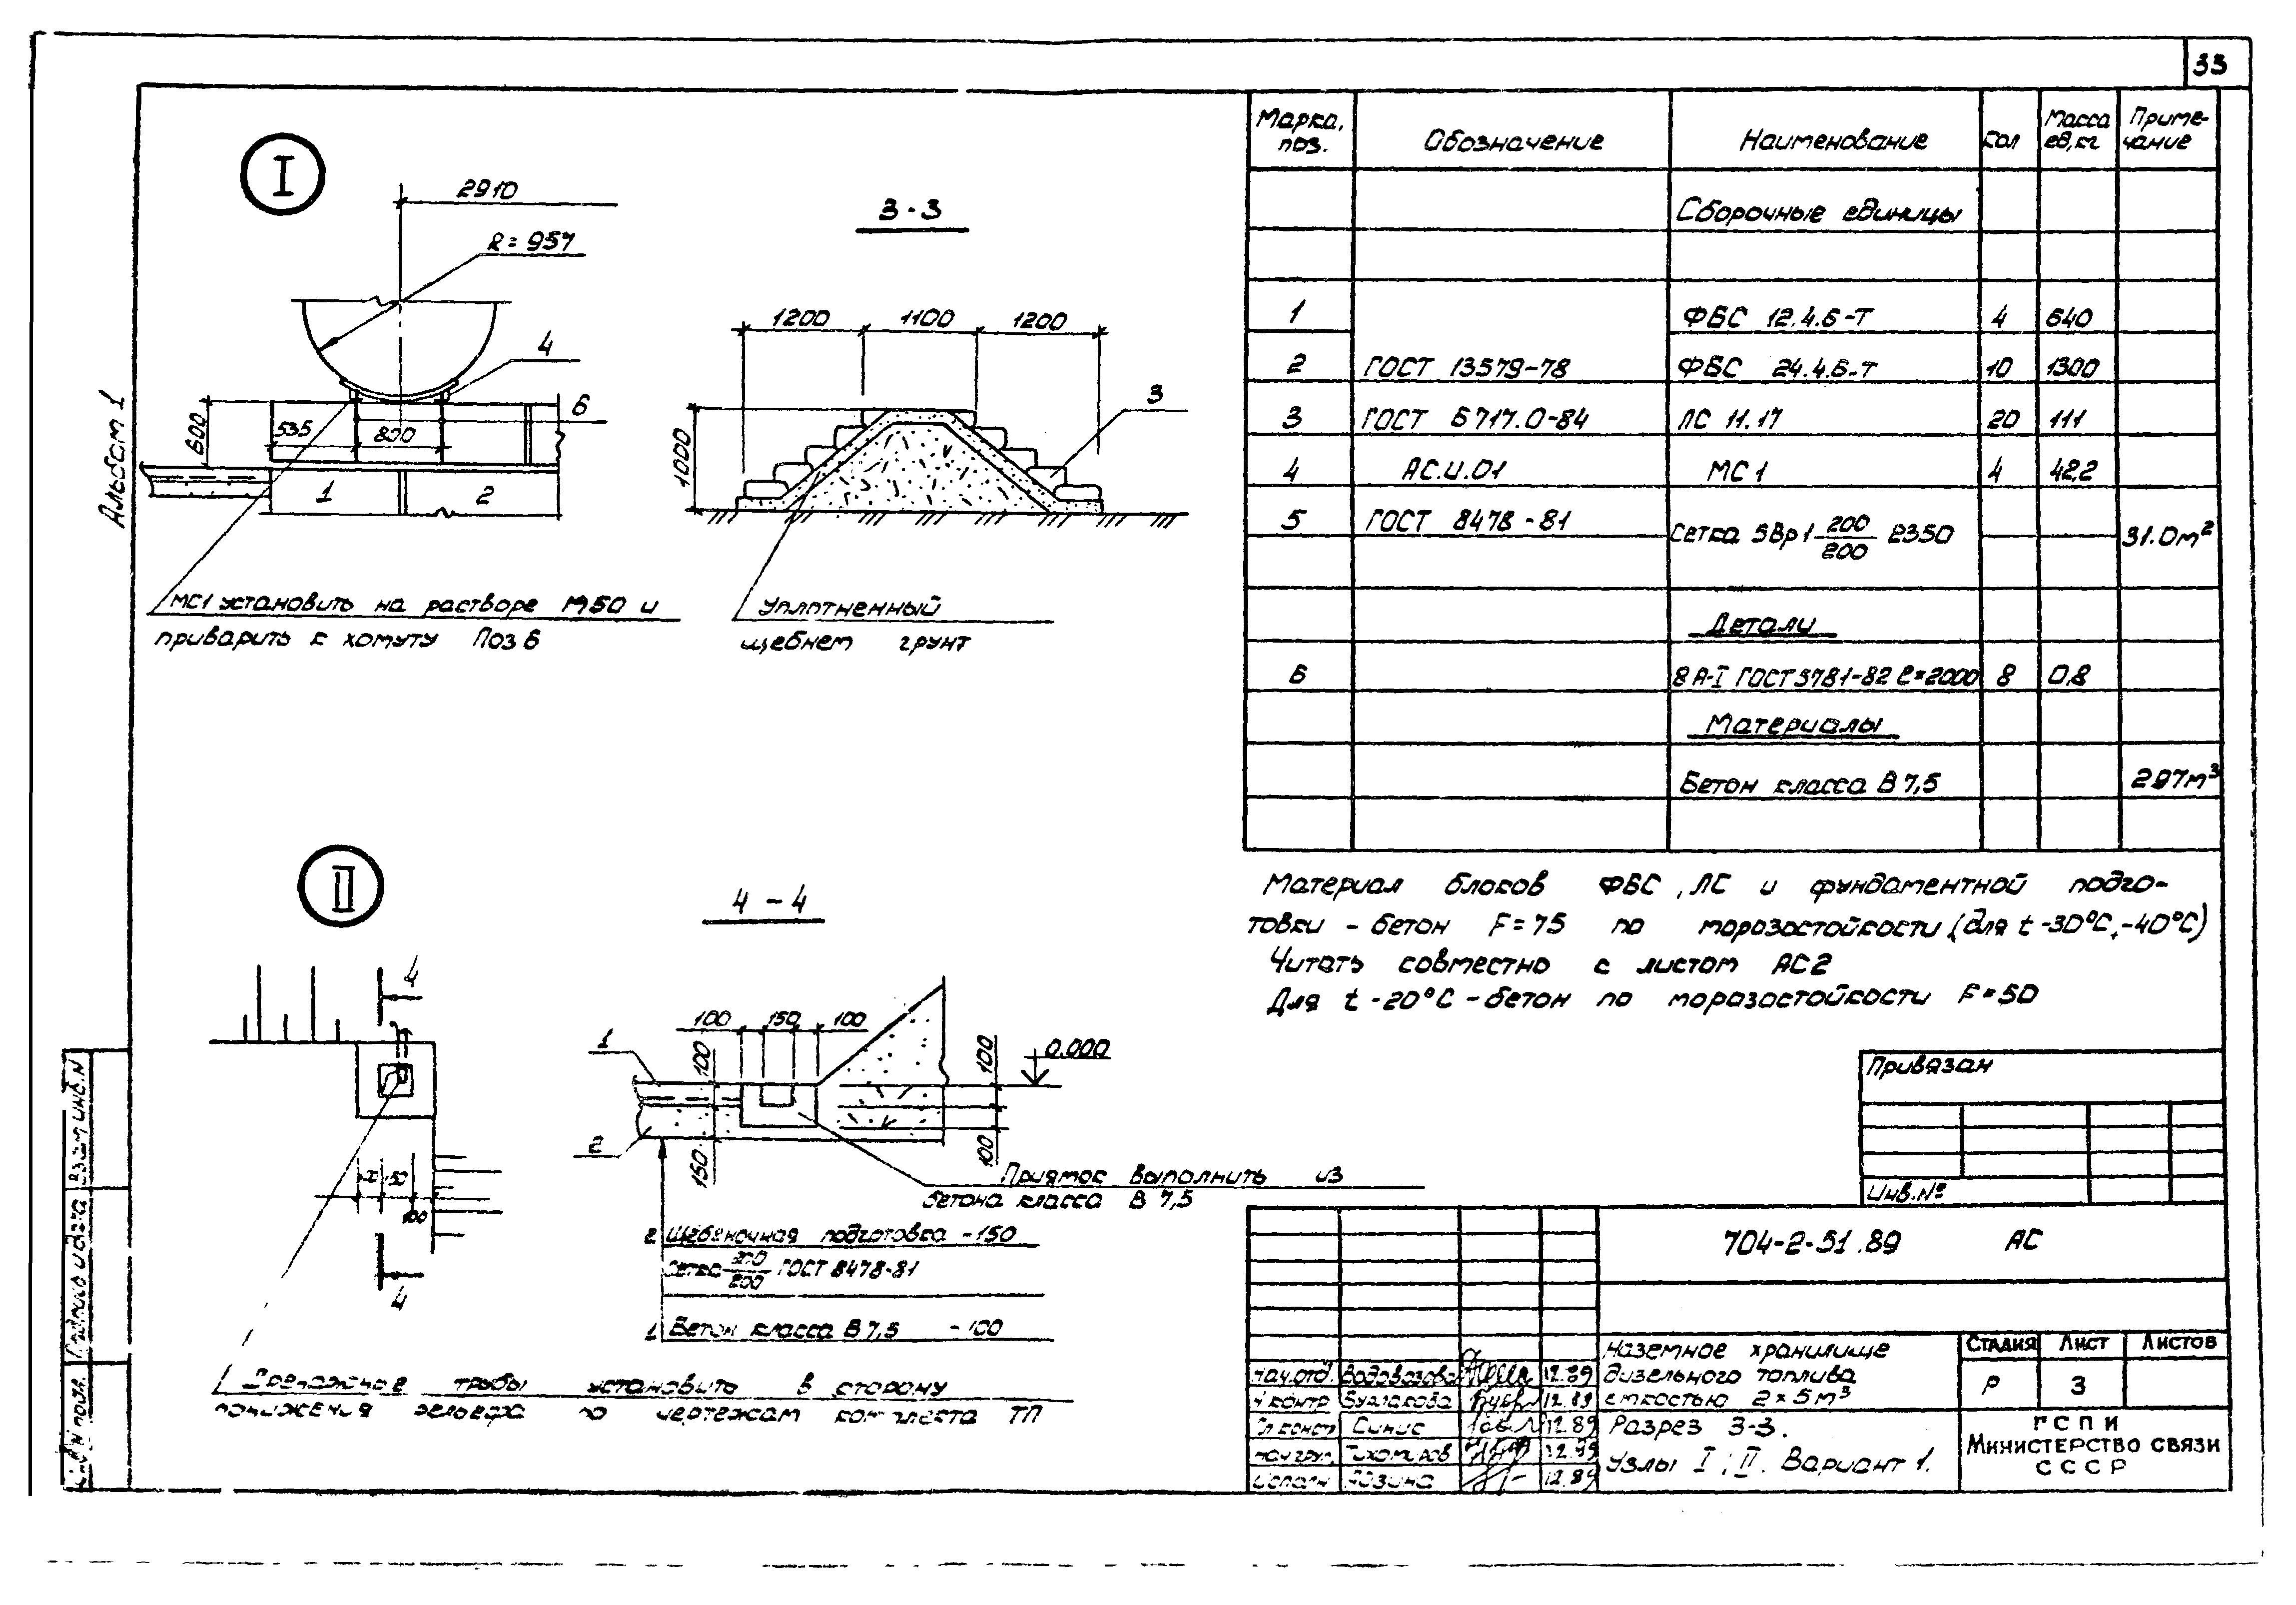 33
Альбом 1
I
2910
R=957
4
6
600
535
800
1
2
МС1 установить на растворе М50 и
приварить к хомуту Поз 6
3-3
1200
1100
1200
1000
3
Уплотненный
щебнем грунт
II
4
4
100
4-4
100
150
100
1
2
100
150
100
100
0.000
Приямок выполнить из
бетона класса В 7,5
2 Щебеночная подготовка -150
Сетка 200/200 ГОСТ 8478-81
1 Бетон класса В 7,5 -100
Дренажные трубы установить в сторону
понижения рельефа по чертежам комплекта ТП
Марка, поз.
Обозначение
Наименование
Кол
Масса ед, кг
Приме-
чание
Сборочные единицы
1 ФБС 12.4.6-Т 4 640
2 ГОСТ 13579-78 ФБС 24.4.6-Т 10 1300
3 ГОСТ 6717.0-84 ЛС 11.17 20 111
4 АС.И.01 МС1 4 42,2
5 ГОСТ 8478-81 Сетка 5Вр1 200/200 2350 31.0м²
Детали
6 8 А-I ГОСТ 5781-82 ℓ=2000 8 0,8
Материалы
Бетон класса В 7,5 297м³
Материал блоков ФБС, ЛС и фундаментной подго-
товки - бетон F=75 по морозостойкости (для t -30°С, -40°С)
Читать совместно с листом АС2
Для t -20°С - бетон по морозостойкости F=50
Привязан
Инв.№
704-2-51.89 АС
Наземное хранилище
дизельного топлива
емкостью 2×5м³
Разрез 3-3.
Узлы I; II. Вариант 1.
Стадия Лист Листов
Р 3
ГСПИ
Министерство связи
СССР
Нач.отд. Водовозова 12.89
Н контр Булгакова 12.89
Гл конст Синис 12.89
нач груп Тихомиров 12.89
Исполн 12.89
Взам инв.N
Подпись и дата
Инв N подл.